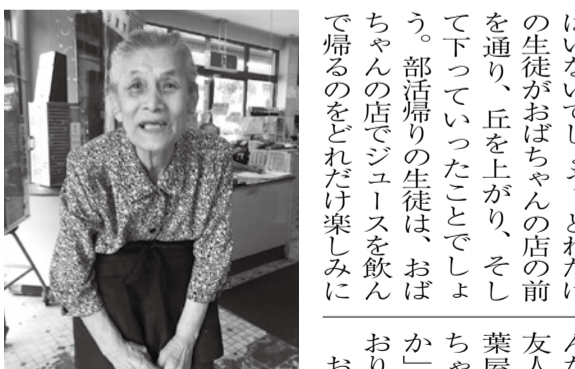 はいないでしょう。どれだけ
の生徒がおばちゃんの店の前
を通り、丘を上がり、そし
て下っていったことでしょ
う。部活帰りの生徒は、おば
ちゃんの店でジュースを飲ん
で帰るのをどれだけ楽しみに
友人
葉屋
ちゃ
か」
おり
お